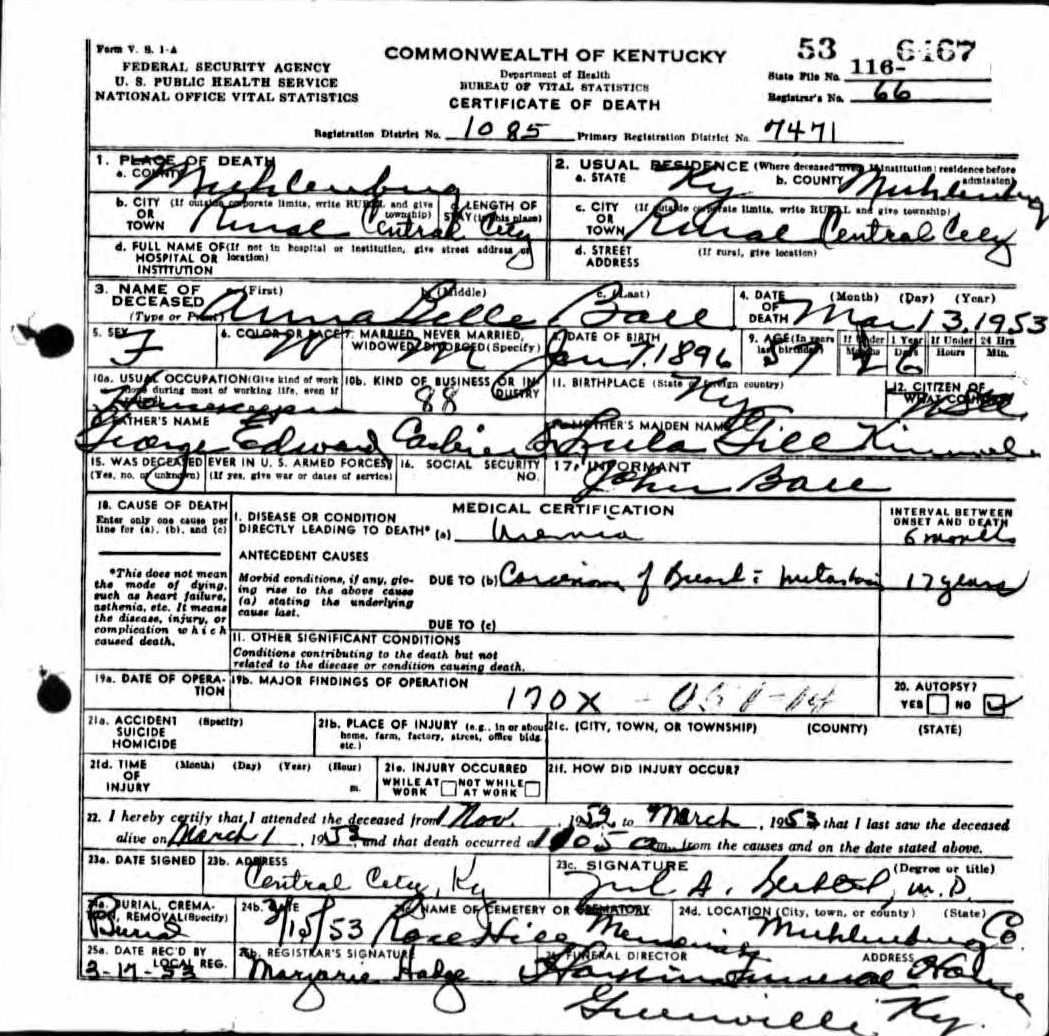 Form V. S. 1-A
FEDERAL SECURITY AGENCY
U. S. PUBLIC HEALTH SERVICE
NATIONAL OFFICE VITAL STATISTICS
COMMONWEALTH OF KENTUCKY
Department of Health
BUREAU OF VITAL STATISTICS
CERTIFICATE OF DEATH
53 6467
State File No. 116-
Registrar's No. 66
Registration District No. 1085 Primary Registration District No. 7471
1. PLACE OF DEATH
a. COUNTY Muhlenburg
2. USUAL RESIDENCE (Where deceased lived. If institution: residence before admission)
a. STATE Ky b. COUNTY Muhlenburg
b. CITY (If outside corporate limits, write RURAL and give township) OR TOWN Rural Central City
c. LENGTH OF STAY (in this place)
c. CITY (If outside corporate limits, write RURAL and give township) OR TOWN Rural Central City
d. FULL NAME OF (If not in hospital or institution, give street address or location) HOSPITAL OR INSTITUTION
d. STREET ADDRESS (If rural, give location)
3. NAME OF DECEASED (Type or Print) a. (First) b. (Middle) c. (Last)
Anna Belle Ball
4. DATE OF DEATH (Month) (Day) (Year)
Mar 13, 1953
5. SEX F
6. COLOR OR RACE W
7. MARRIED, NEVER MARRIED, WIDOWED, DIVORCED (Specify) M
8. DATE OF BIRTH Jan 7, 1896
9. AGE (In years last birthday) 57
If Under 1 Year Months 2 Days 6
If Under 24 Hrs Hours Min.
10a. USUAL OCCUPATION (Give kind of work done during most of working life, even if retired) Housekeeper
10b. KIND OF BUSINESS OR INDUSTRY 88
11. BIRTHPLACE (State or foreign country) Ky
12. CITIZEN OF WHAT COUNTRY?
13. FATHER'S NAME George Edward
14. MOTHER'S MAIDEN NAME Lula Gill
15. WAS DECEASED EVER IN U. S. ARMED FORCES? (Yes, no, or unknown) (If yes, give war or dates of service)
16. SOCIAL SECURITY NO.
17. INFORMANT John Ball
18. CAUSE OF DEATH
Enter only one cause per line for (a), (b), and (c)
MEDICAL CERTIFICATION
INTERVAL BETWEEN ONSET AND DEATH
I. DISEASE OR CONDITION DIRECTLY LEADING TO DEATH* (a) Uremia 6 months
*This does not mean the mode of dying, such as heart failure, asthenia, etc. It means the disease, injury, or complication which caused death.
ANTECEDENT CAUSES
Morbid conditions, if any, giving rise to the above cause (a) stating the underlying cause last.
DUE TO (b) Carcinoma of Breast c metastasis 17 years
DUE TO (c)
II. OTHER SIGNIFICANT CONDITIONS
Conditions contributing to the death but not related to the disease or condition causing death.
19a. DATE OF OPERATION
19b. MAJOR FINDINGS OF OPERATION
170X
20. AUTOPSY?
YES NO
21a. ACCIDENT SUICIDE HOMICIDE (Specify)
21b. PLACE OF INJURY (e.g., in or about home, farm, factory, street, office bldg. etc.)
21c. (CITY, TOWN, OR TOWNSHIP) (COUNTY) (STATE)
21d. TIME OF INJURY (Month) (Day) (Year) (Hour) m.
21e. INJURY OCCURRED
WHILE AT WORK NOT WHILE AT WORK
21f. HOW DID INJURY OCCUR?
22. I hereby certify that I attended the deceased from 1 Nov., 1952, to March, 1953 that I last saw the deceased
alive on March 1, 1953, and that death occurred at 1:05 a m. from the causes and on the date stated above.
23a. DATE SIGNED
23b. ADDRESS Central City, Ky
23c. SIGNATURE (Degree or title) A. M.D.
24a. BURIAL, CREMATION, REMOVAL (Specify) Burial
24b. DATE 3/15/53
24c. NAME OF CEMETERY OR CREMATORY Rose Hill Memorial
24d. LOCATION (City, town, or county) (State) Muhlenburg Co
25a. DATE REC'D BY LOCAL REG. 3-17-53
25b. REGISTRAR'S SIGNATURE Marjorie
26. FUNERAL DIRECTOR ADDRESS
Funeral Home
Greenville Ky.